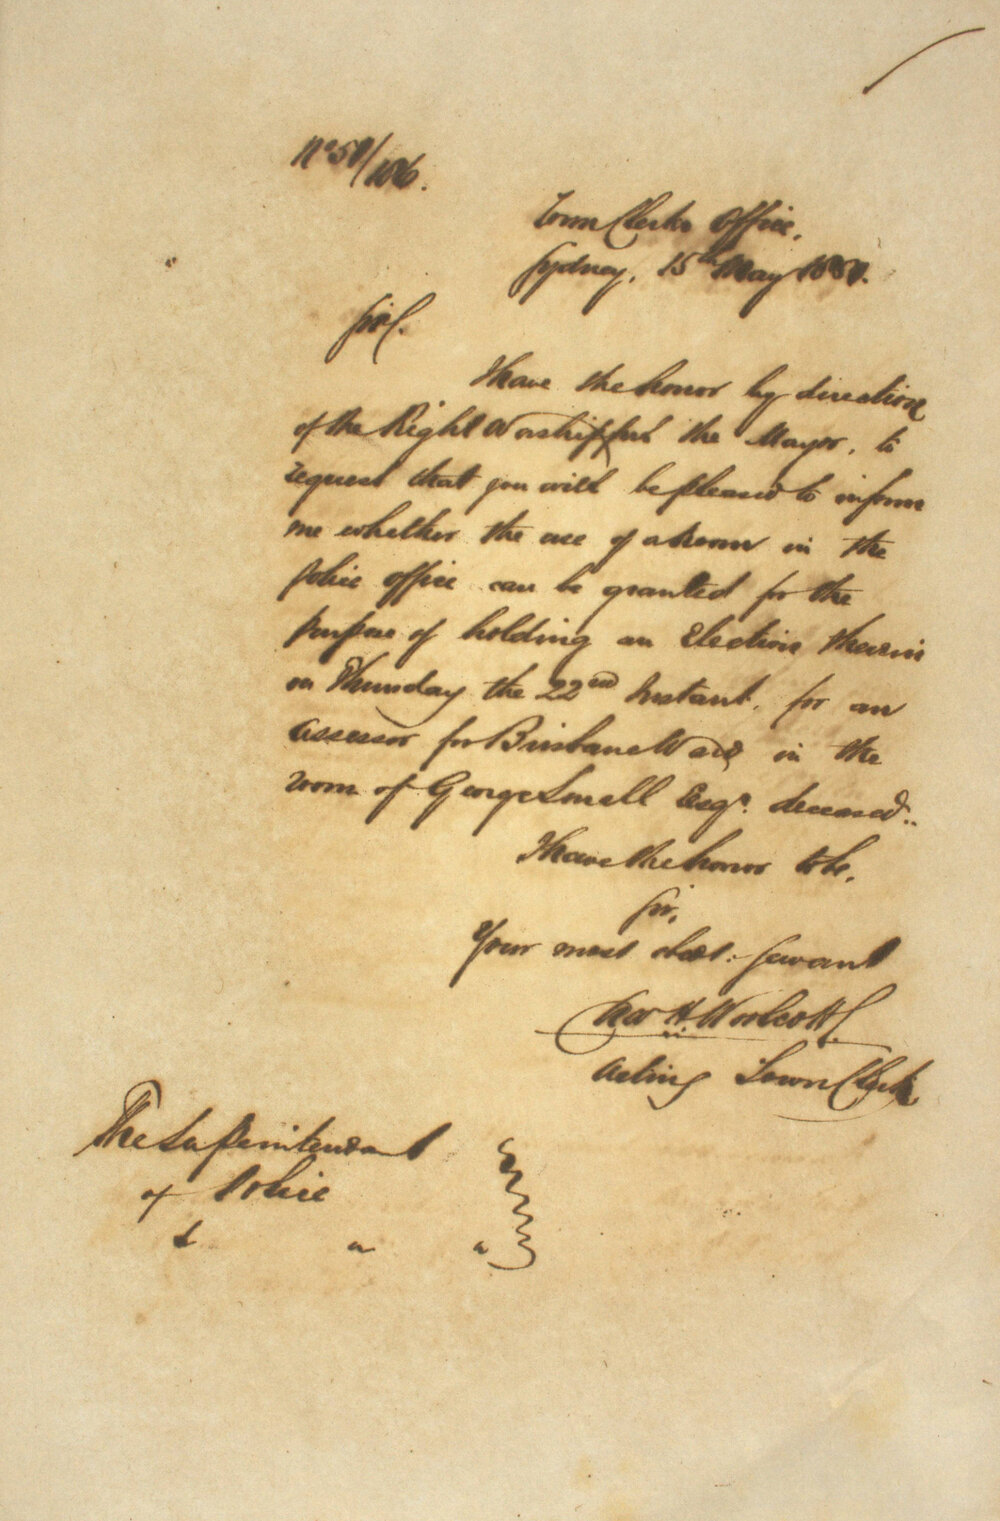 No 51/186.
Town Clerks Office,
Sydney, 15th May 1851.
Sir,
I have the honor by direction
of the Right Worshipful the Mayor, to
request that you will be pleased to inform
me whether the use of a Room in the
Police office can be granted for the
purpose of holding an Election therein
on Thursday the 22nd Instant, for an
assessor for Brisbane Ward in the
room of George Smell Esqr. deceased..
I have the honor to be,
Sir,
Your most obedt. Servant
H. Woolcott
Acting Town Clerk
The Superintendant
of Police